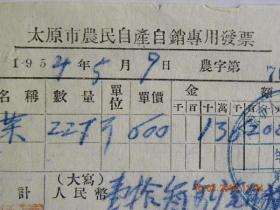 太原市農民自產自銷專用發票
1954年5月9日 農字第 7
名稱 數量 單位 單價 金額
千百十萬千百
菜 227斤 600 136200
計 (大寫)人民幣 壹拾叁萬